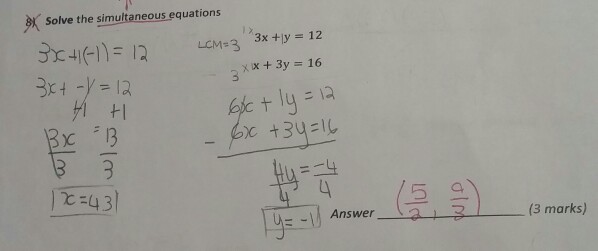 8) Solve the simultaneous equations
LCM=3
1x 3x + 1y = 12
3x 1x + 3y = 16
3x+1(-1) = 12
3x + -1 = 12
+1 +1
3x = 13
3 3
x = 43
6x + 1y = 12
- 6x + 3y = 16
4y = -4
4 4
y = -1
Answer (5/2, 9/3) (3 marks)